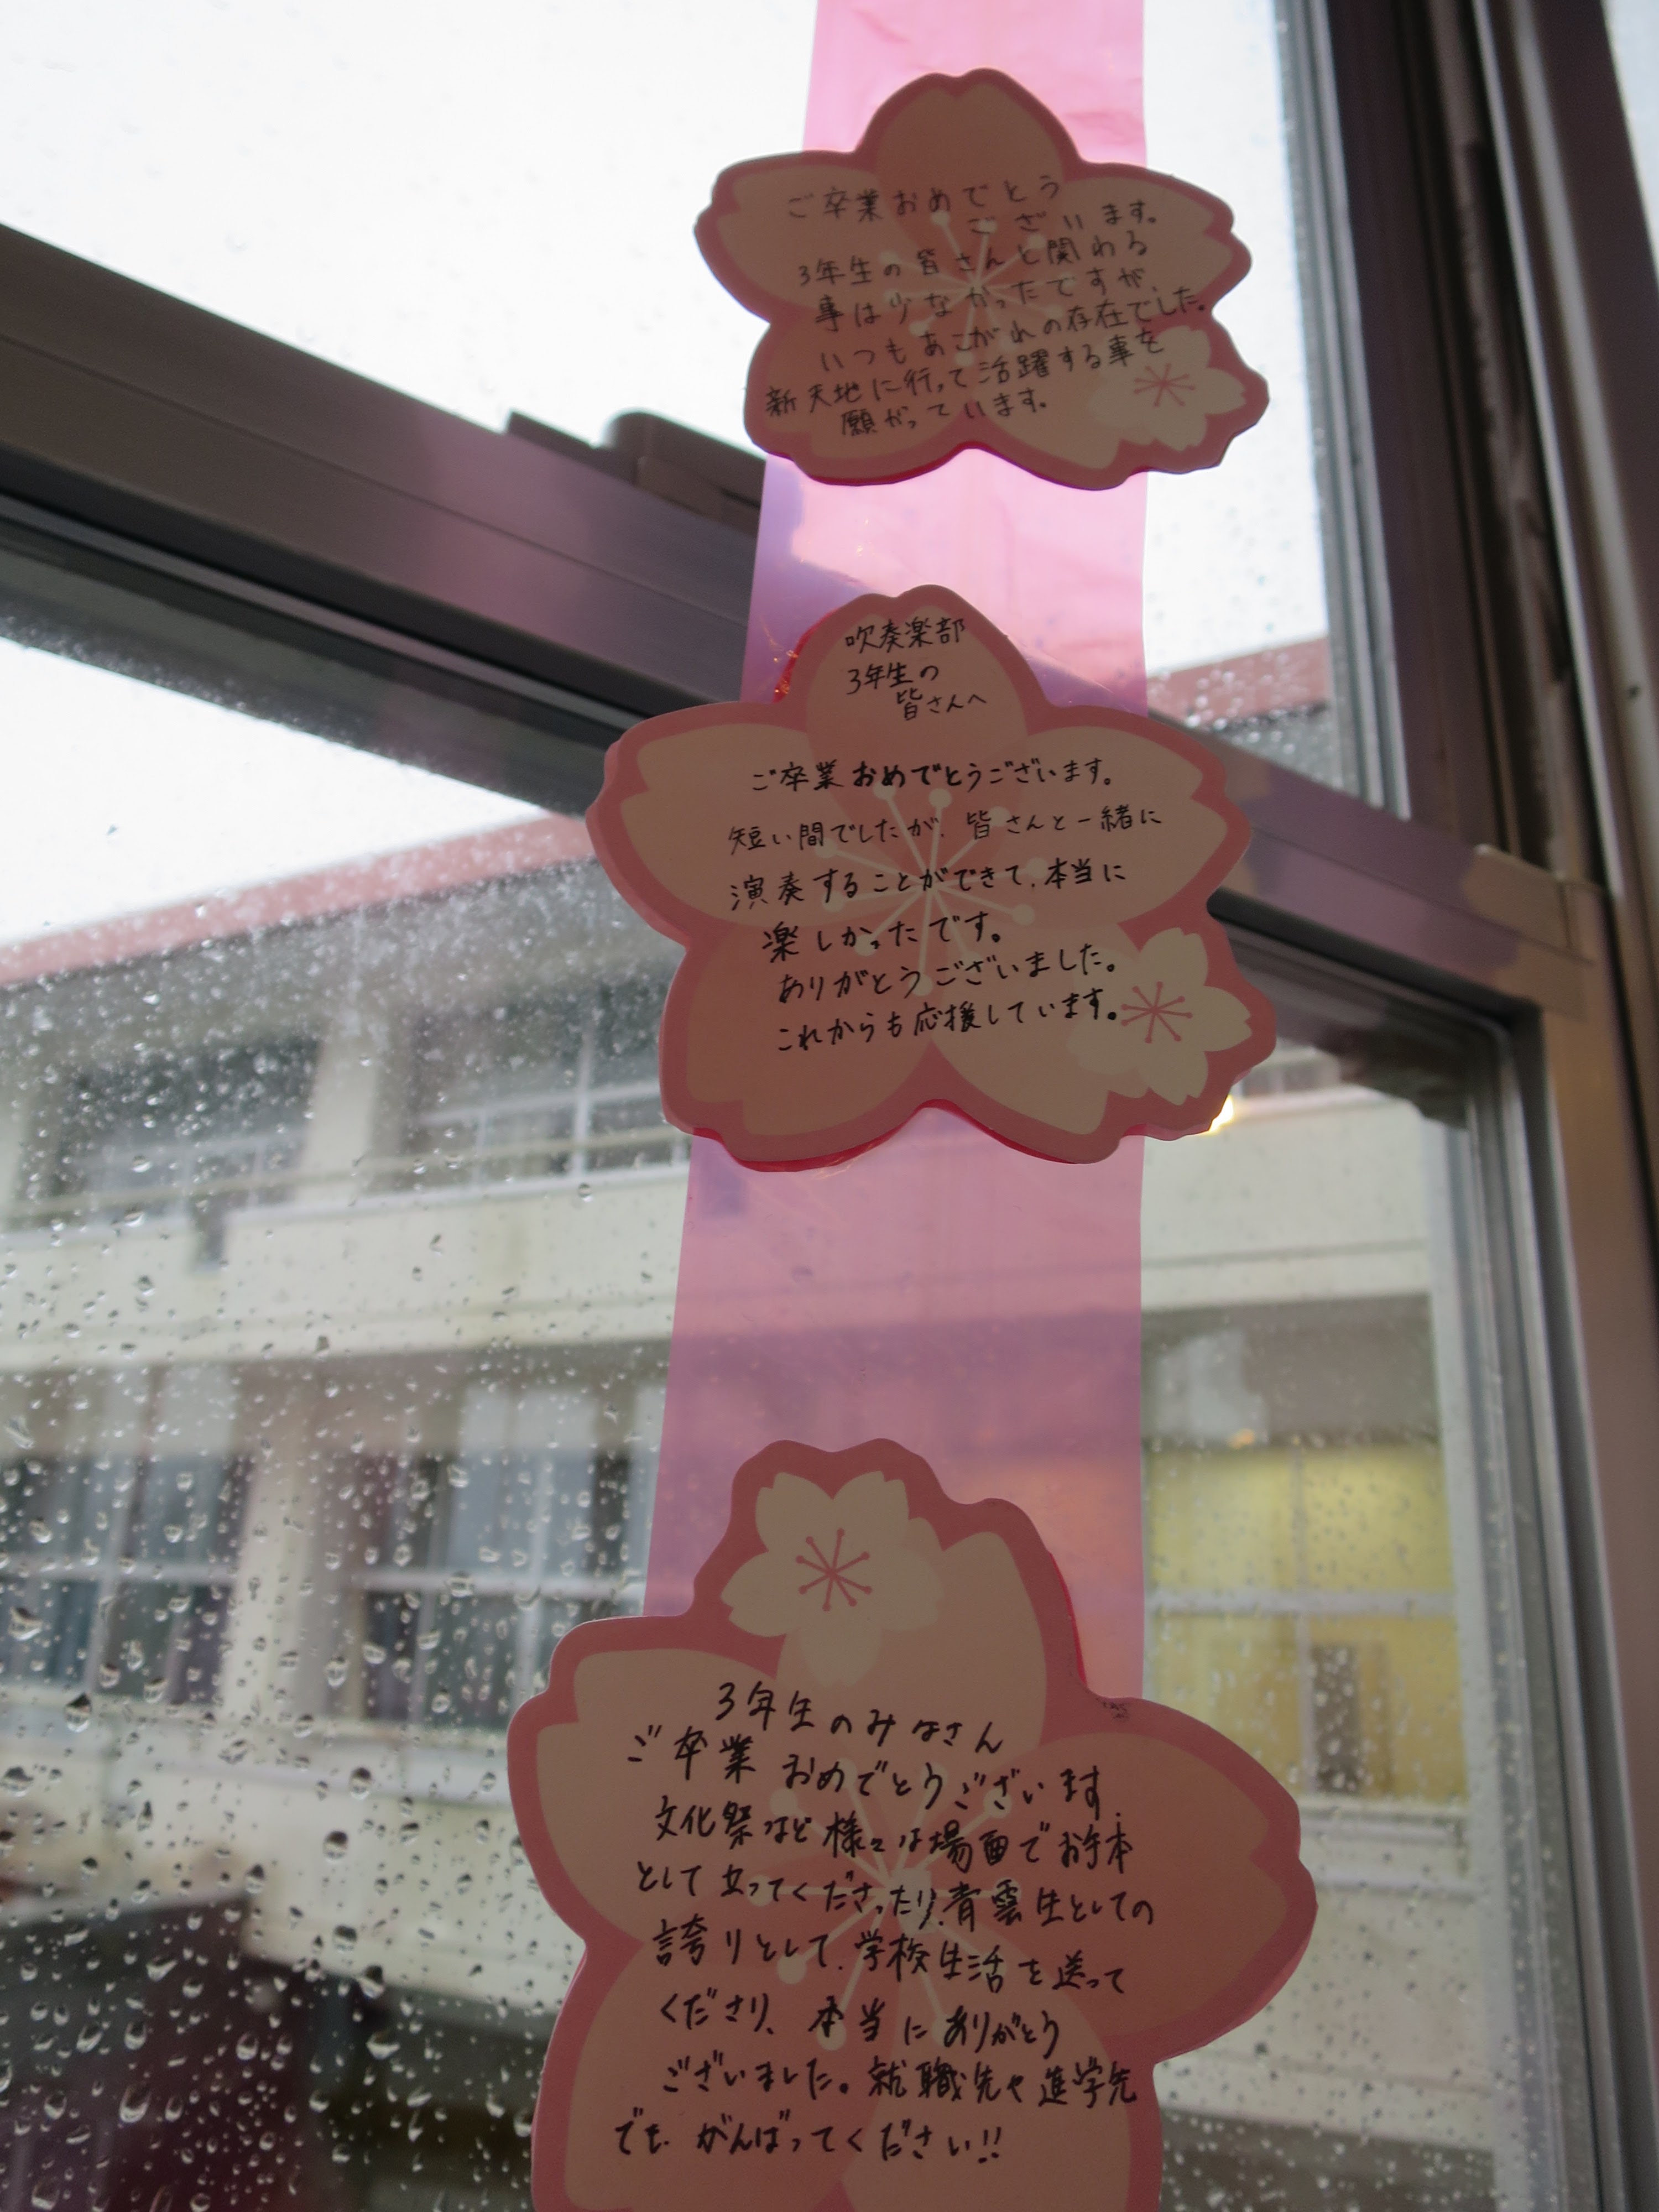 ご卒業おめでとう
ございます。
3年生の皆さんと関わる
事は少なかったですが、
いつもあこがれの存在でした。
新天地に行って活躍する事を
願がっています。
吹奏楽部
3年生の
皆さんへ
ご卒業おめでとうございます。
短い間でしたが、皆さんと一緒に
演奏することができて、本当に
楽しかったです。
ありがとうございました。
これからも応援しています。
3年生のみなさん
ご卒業おめでとうございます。
文化祭など様々な場面でお手本
として立ってくださったり、青雲生としての
誇りとして、学校生活を送って
くださり、本当にありがとう
ございました。就職先や進学先
でも、がんばってください!!